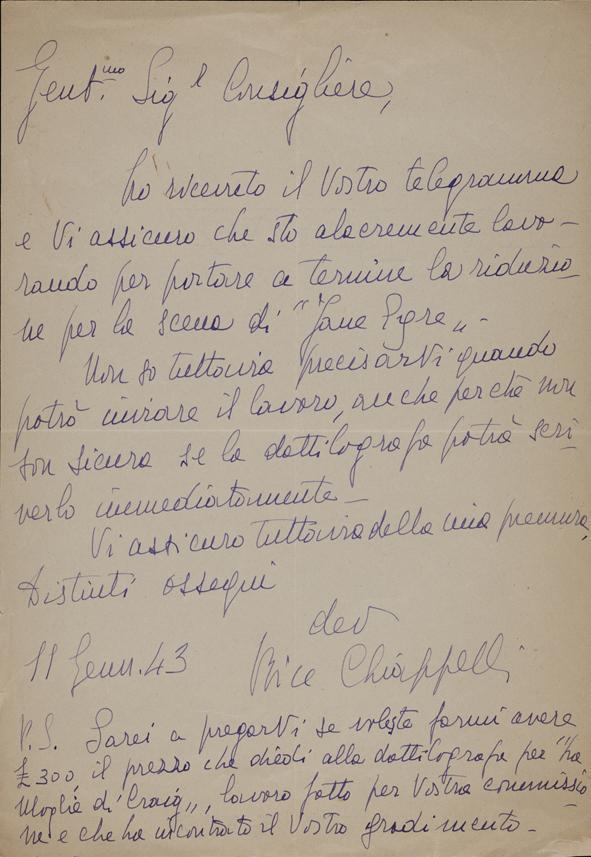 Gent.mo Sigr Consigliere,
ho ricevuto il Vostro telegramma
e Vi assicuro che sto alacremente lavo-
rando per portare a termine la riduzio-
ne per la scena di "Jane Eyre„-
Non so tuttavia precisarVi quando
potrò inviare il lavoro, anche perchè non
son sicura se la dattilografa potrà scri-
verlo immediatamente-
Vi assicuro tuttavia della mia premura,
Distinti ossequi
dev
11 Genn. 43 Bice Chiappelli
P.S. Sarei a pregarVi se voleste farmi avere
£ 300, il prezzo che diedi alla dattilografa per "La
Moglie di Craig„, lavoro fatto per Vostra commissio-
ne e che ha incontrato il Vostro gradimento-